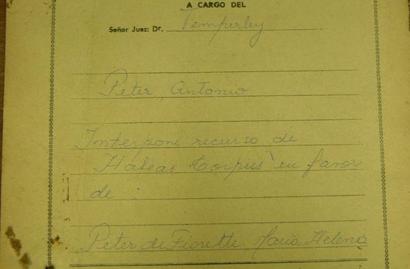 A CARGO DEL
Señor Juez: Dr. Temperley
Peter, Antonio
Interpone recurso de
Habeas Corpus en favor
de :
Peter de Fioretti, María Helena